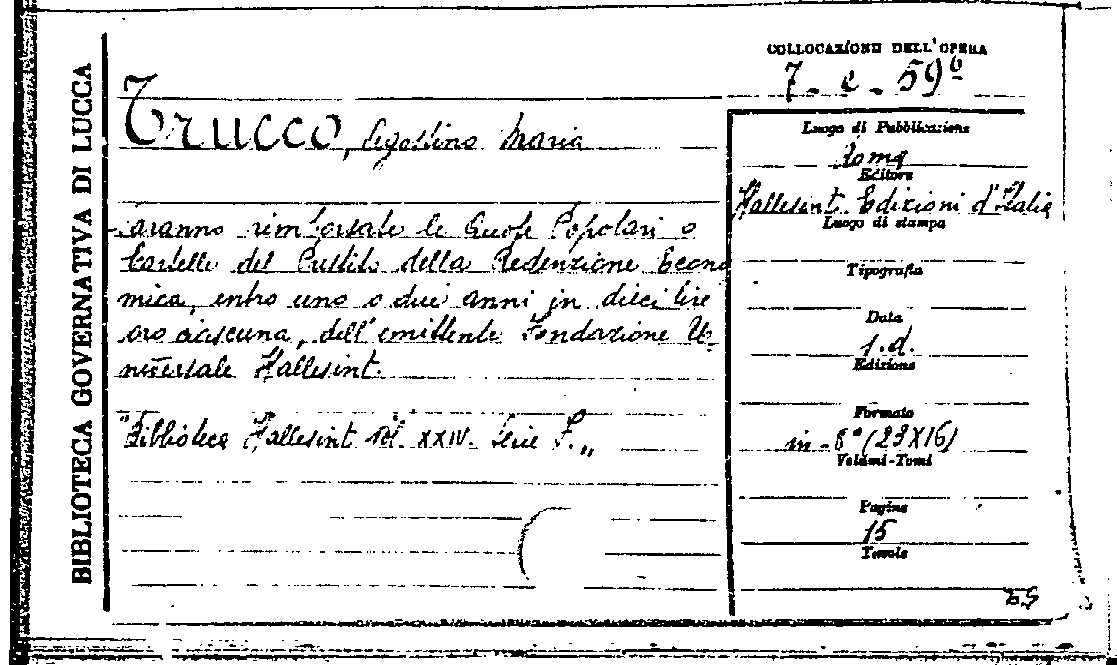 BIBLIOTECA GOVERNATIVA DI LUCCA
COLLOCAZIONE DELL'OPERA
7 - e - 59º
Trucco, Agostino Maria
Luogo di Pubblicazione
Roma
Editore
Hallesint Edizioni d'Italia
Luogo di stampa
Tipografia
Data
s.d.
Edizione
Formato
in - 8º (23X16)
Volumi-Tomi
Pagine
15
Tavole
Saranno rimborsate le Quote Popolari o
Cartelle del Prestito della Redenzione Econo
mica, entro uno o due anni in dieci lire
oro ciascuna, dell'emittente Fondazione U-
niversale Hallesint.
"Biblioteca Hallesint Vol. XXIV. Serie F.„